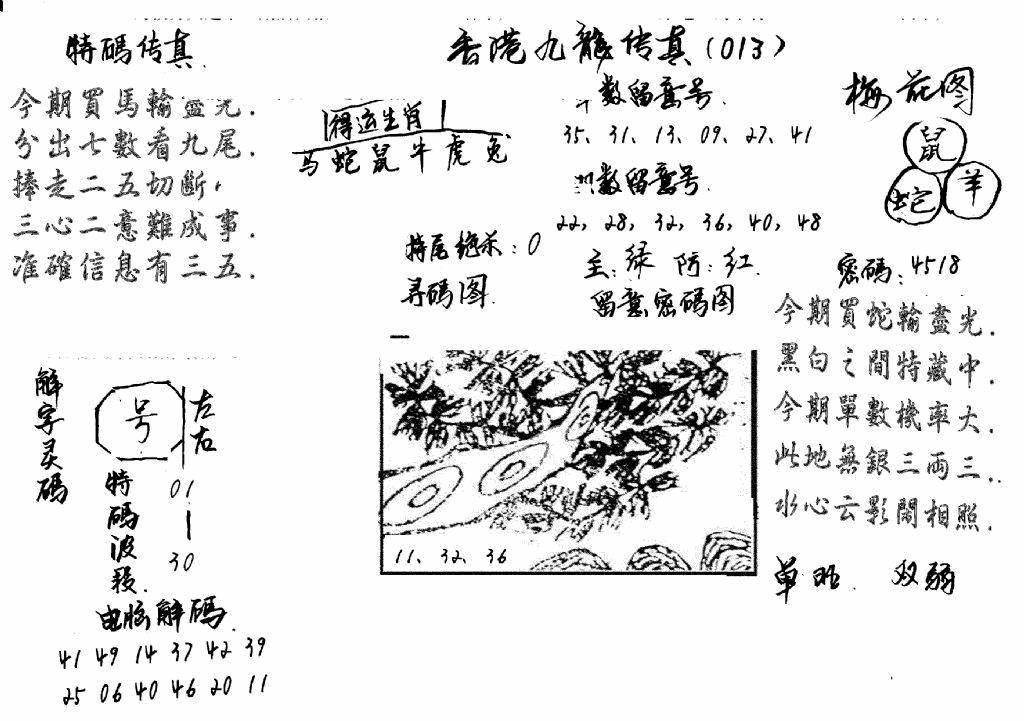 特碼传真
香港九龍传真(013)
今期買馬輸盡光.
分出七數看九尾.
捧走二五切斷,
三心二意難成事.
准確信息有三五.
得运生肖
马蛇鼠牛虎兔
数留意号.
35、31、13、09、27、41
数留意号.
22, 28, 32, 36, 40, 48
特尾绝杀:0
主:绿 防:红.
寻码图.
留意密码图
梅花图
鼠
蛇 羊
密码:4518
今期買蛇輸盡光.
黑白之間特藏中.
今期單數機率大.
此地無銀三両三..
水心云影閑相照.
单旺 双弱
解字灵碼
号
左右
特碼波段.
01
30
电脑解碼.
41 49 14 37 42 39
25 06 40 46 20 11
11、32、36